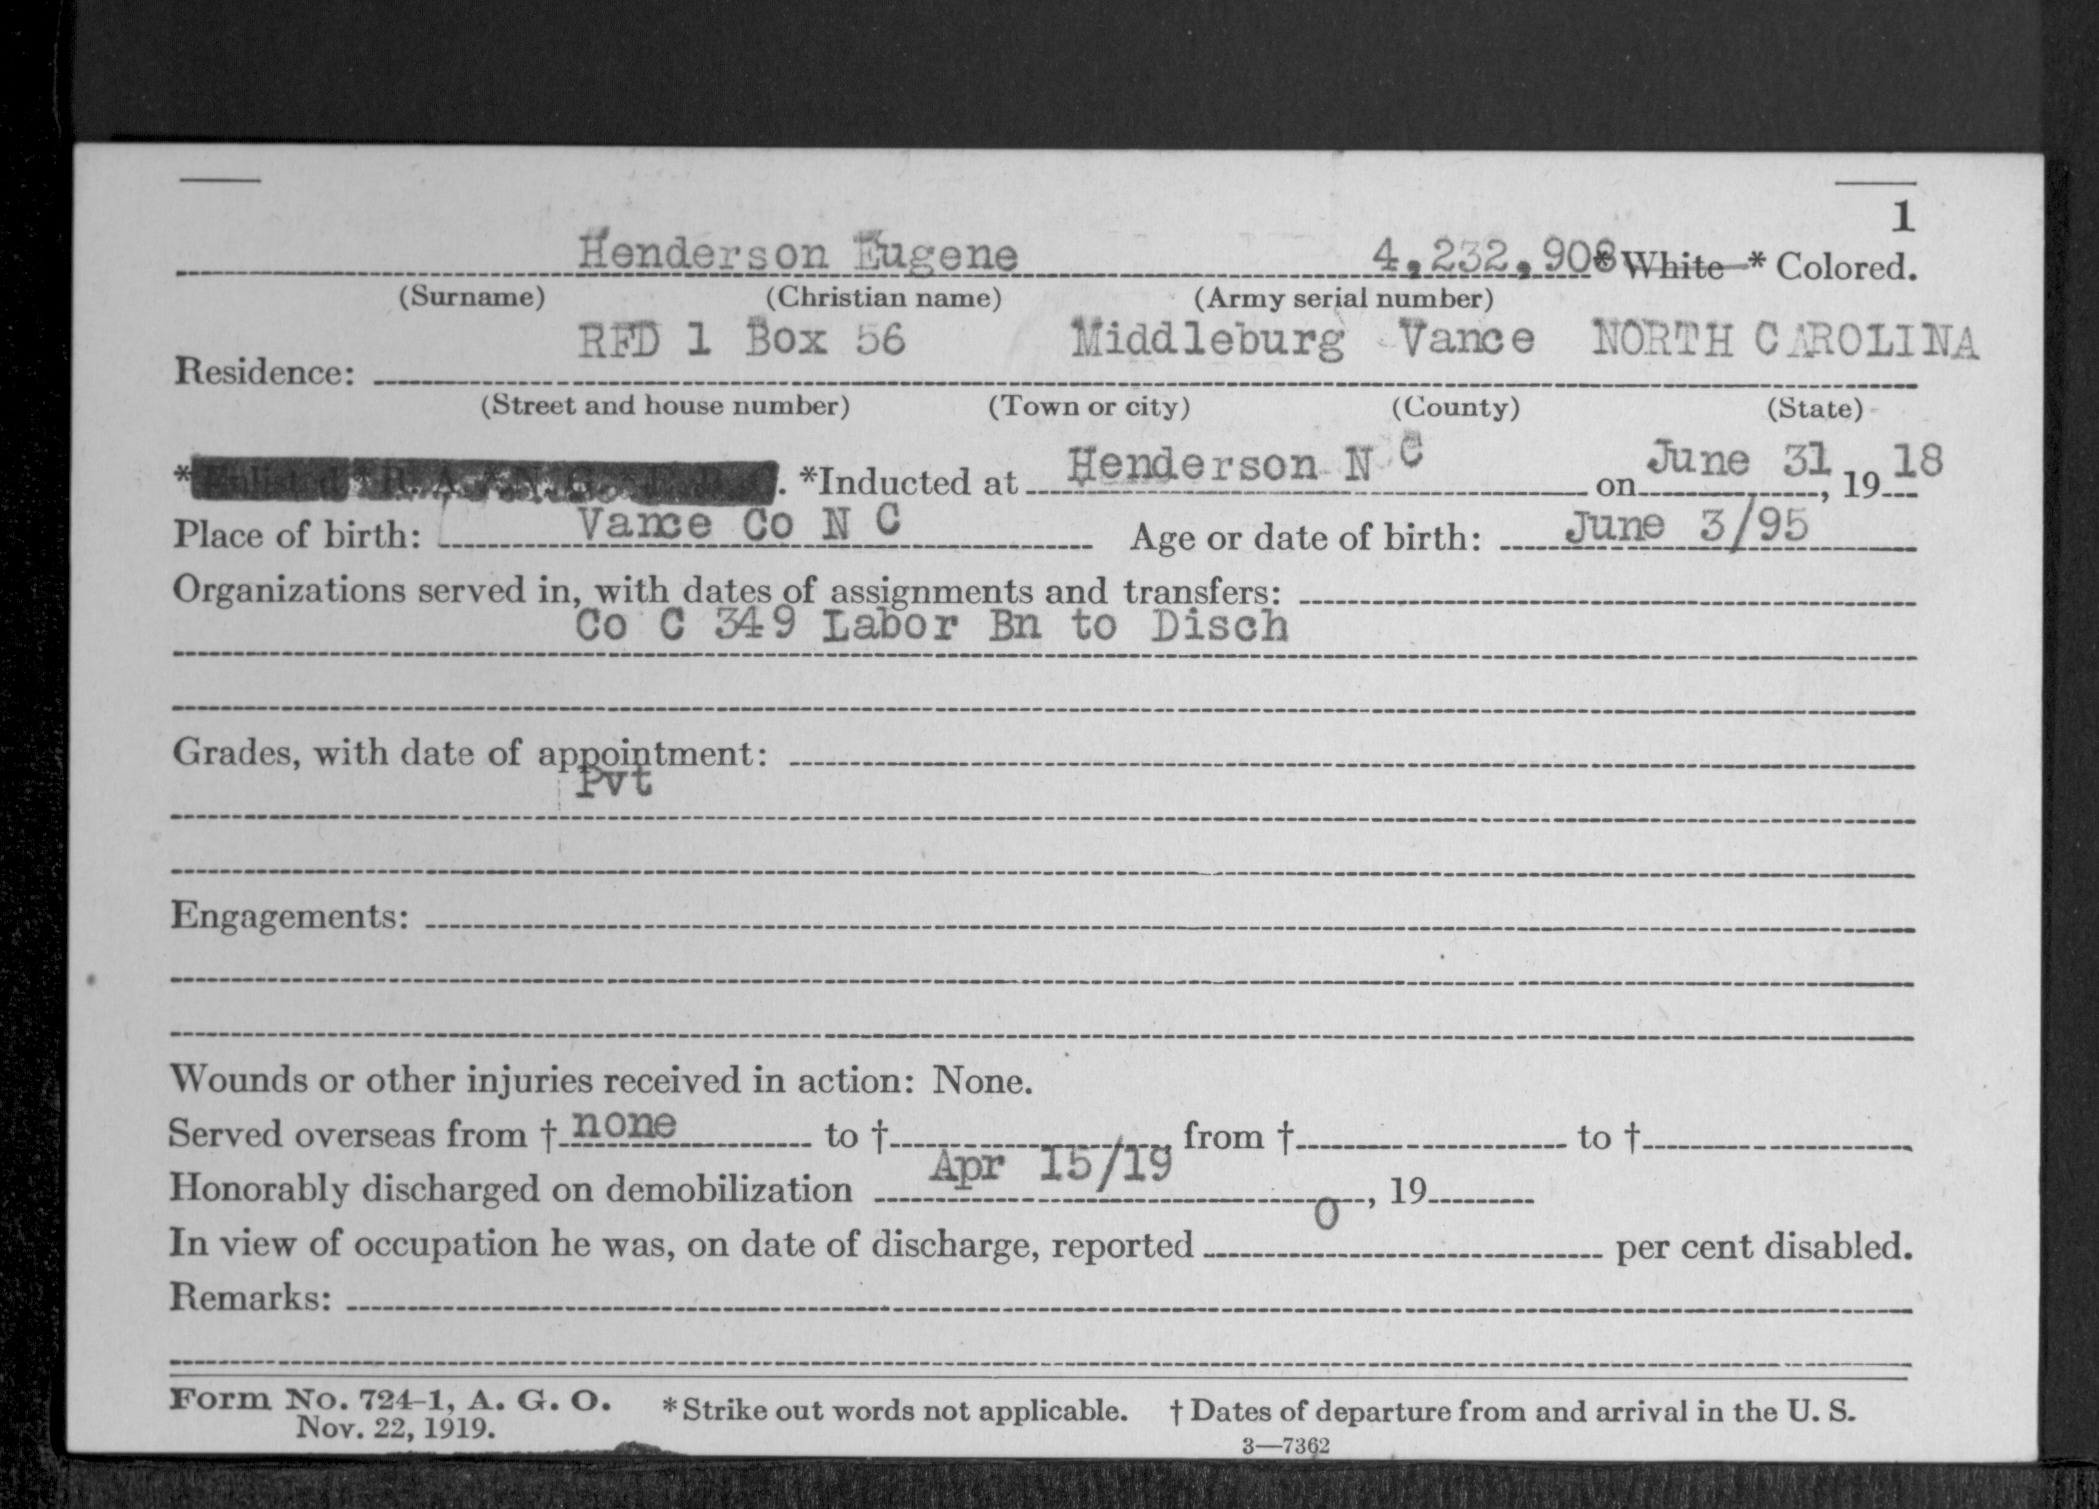 1
Henderson Eugene 4,232,908 * White * Colored.
(Surname) (Christian name) (Army serial number)
RFD 1 Box 56 Middleburg Vance NORTH CAROLINA
Residence:
(Street and house number) (Town or city) (County) (State)
*Enlisted * R. A. * N. G. * E. R. C. *Inducted at Henderson N C on June 31, 1918
Place of birth: Vance Co N C Age or date of birth: June 3/95
Organizations served in, with dates of assignments and transfers:
Co C 349 Labor Bn to Disch
Grades, with date of appointment:
Pvt
Engagements:
Wounds or other injuries received in action: None.
Served overseas from † none to † from † to †
Honorably discharged on demobilization Apr 15/19, 19
In view of occupation he was, on date of discharge, reported 0 per cent disabled.
Remarks:
Form No. 724-1, A. G. O. * Strike out words not applicable. † Dates of departure from and arrival in the U. S.
Nov. 22, 1919.
3—7362